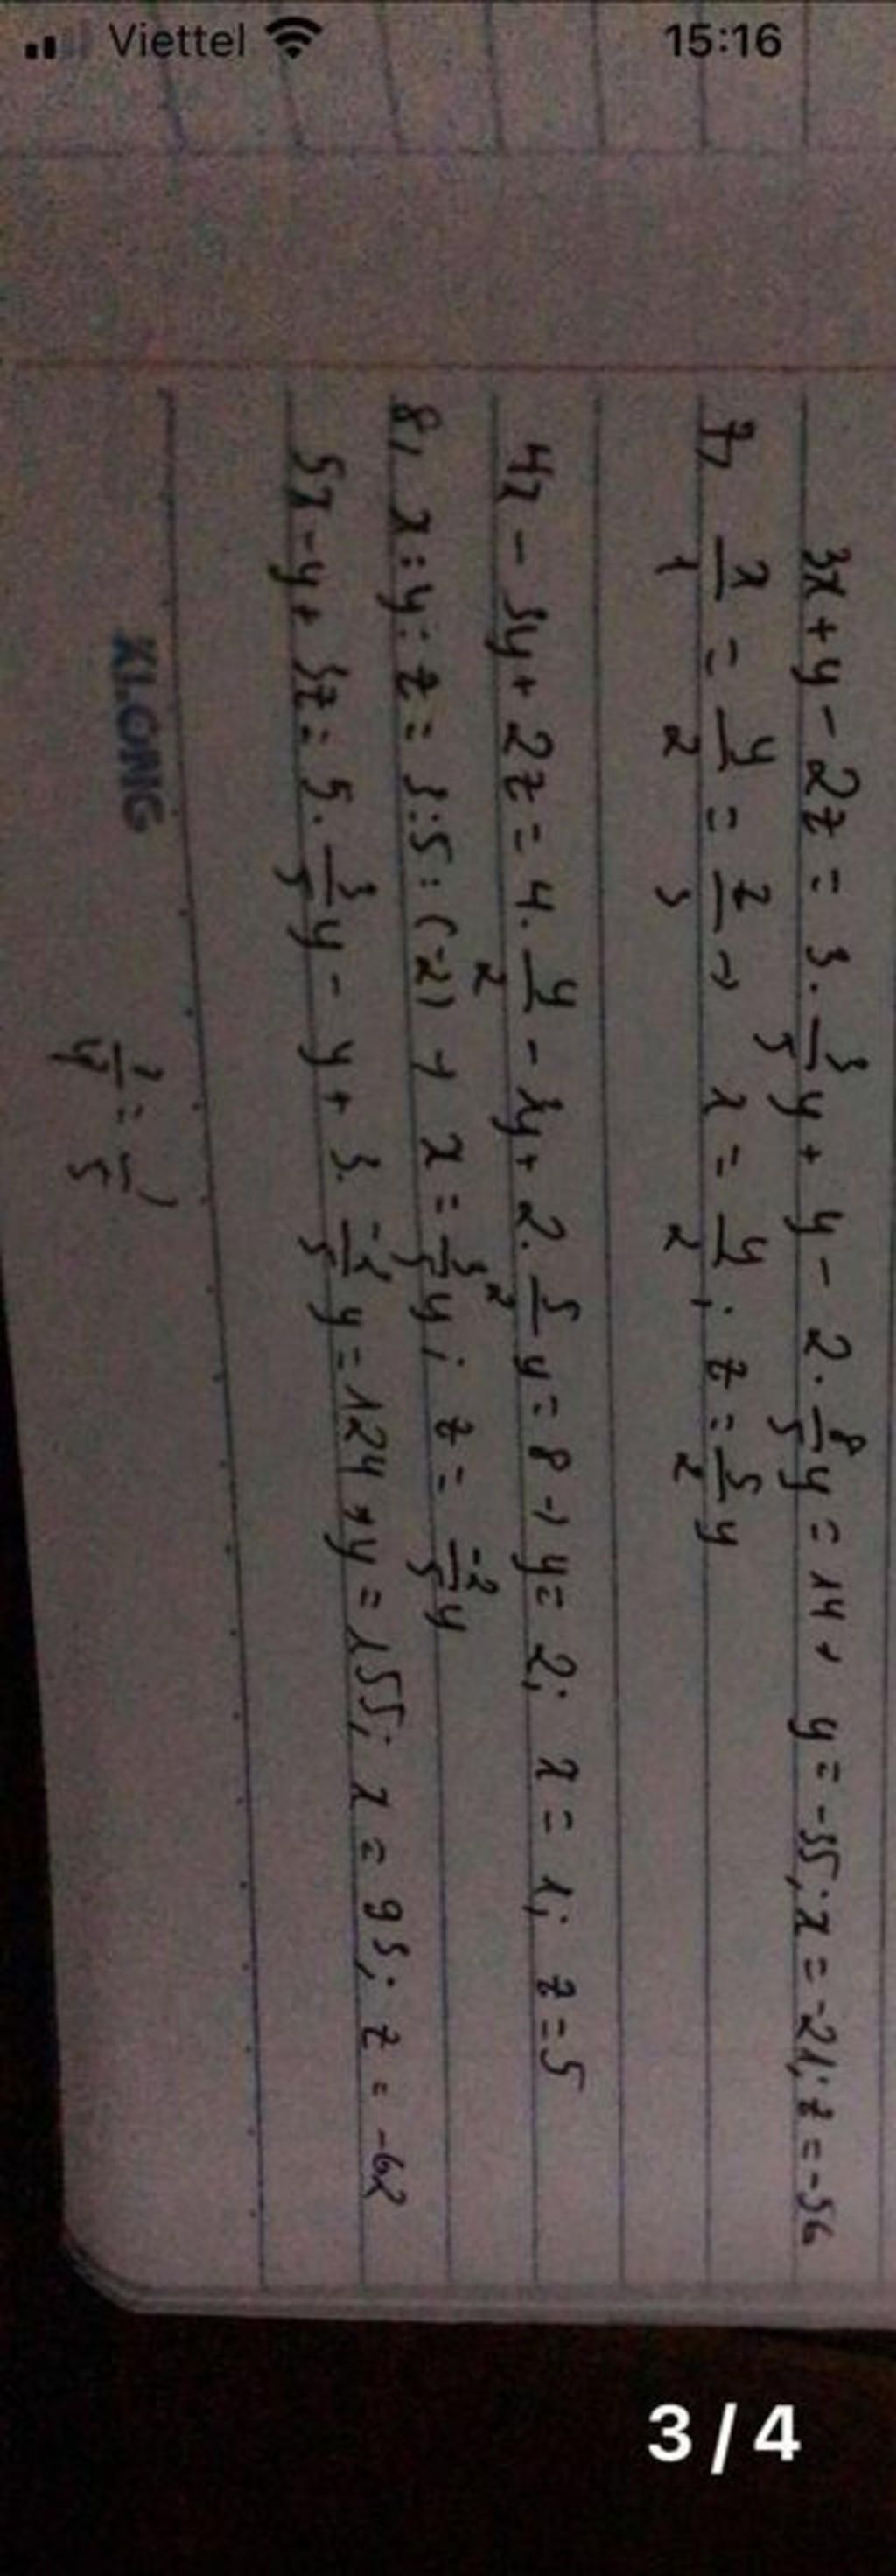 Viettel 15:16
3x + y - 2z = 3 . 3/5 y + y - 2 . 8/5 y = 14 → y = -35; x = -21; z = -56
7, x/1 = y/2 = z/5 → x = y/2; z = 5/2 y
4x - 3y + 2z = 4 . y/2 - 3y + 2 . 5/2 y = 8 → y = 2; x = 1; z = 5
8, x : y : z = 3 : 5 : (-2) → x = 3/5 y; z = -2/5 y
5x - y + 3z = 5 . 3/5 y - y + 3 . -2/5 y = 124 → y = 155; x = 93; z = -62
KLONG
3/4